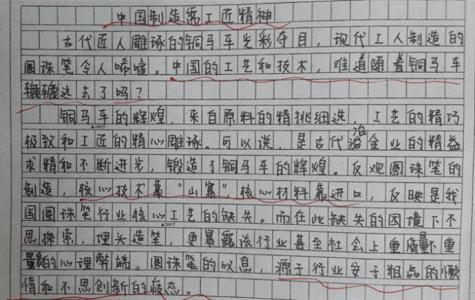 中国制造需工匠精神
古代匠人雕琢的铜马车光彩夺目，现代工人制造的
圆珠笔令人唏嘘。中国的工艺和技术，难道随着铜马车
辘辘远去了吗？
铜马车的辉煌，来自原料的精挑细选，工艺的精巧
极致和工匠的精心雕琢。可以说，是古代冶金业的精益
求精和不断进步，锻造了铜马车的辉煌。反观圆珠笔的
制造，核心技术靠"山寨"，核心材料靠进口，反映是我
国圆珠笔行业核心工艺的缺失。而在此缺失的困境下不
思探索，埋头造笔，更暴露该行业甚至社会上重量不重
质的心理弊端。圆珠笔的叹息，源于行业安于粗品的
情和不思创新的疲态。